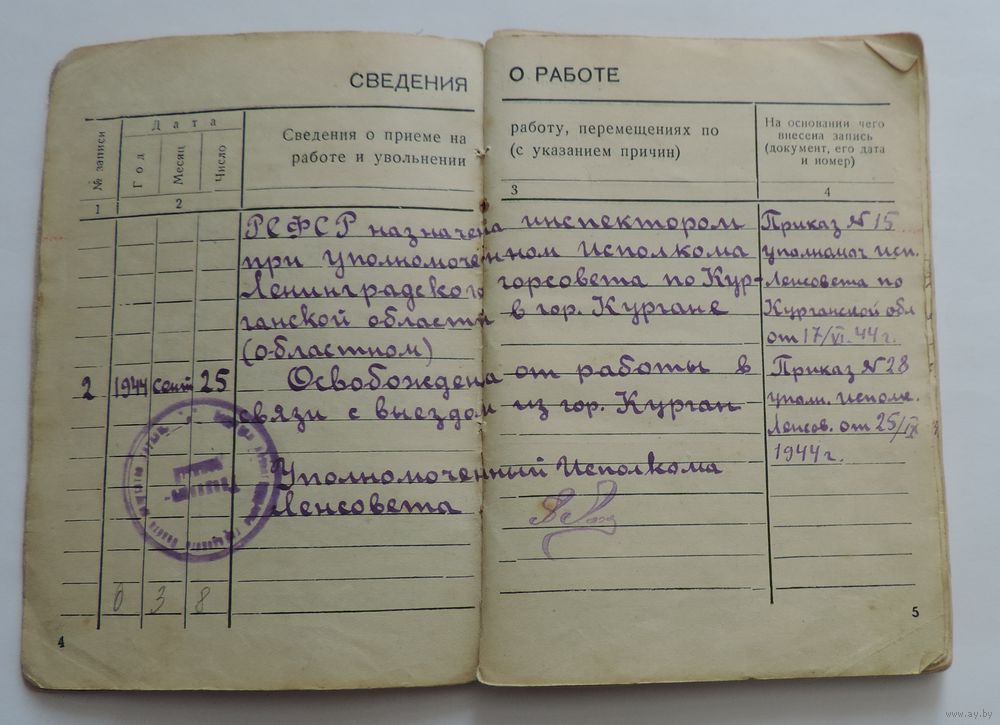 СВЕДЕНИЯ О РАБОТЕ
№ записи
Дата
Год
Месяц
Число
Сведения о приеме на работу, перемещениях по
работе и увольнении (с указанием причин)
На основании чего
внесена запись
(документ, его дата
и номер)
1 2 3 4
РСФСР назначена инспектором
при уполномоченном Исполкома
Ленинградского горсовета по Кур-
ганской области в гор. Кургане
(областном)
Приказ №15
уполномоч исп.
Ленсовета по
Курганской обл
от 17/VI.44г.
2 1944 сент 25 Освобождена от работы в
связи с выездом из гор. Курган
Приказ №28
уполн. исполк.
Ленсов. от 25/IX
1944г.
Уполномоченный Исполкома
Ленсовета
0 3 8
4
5
www.ay.by